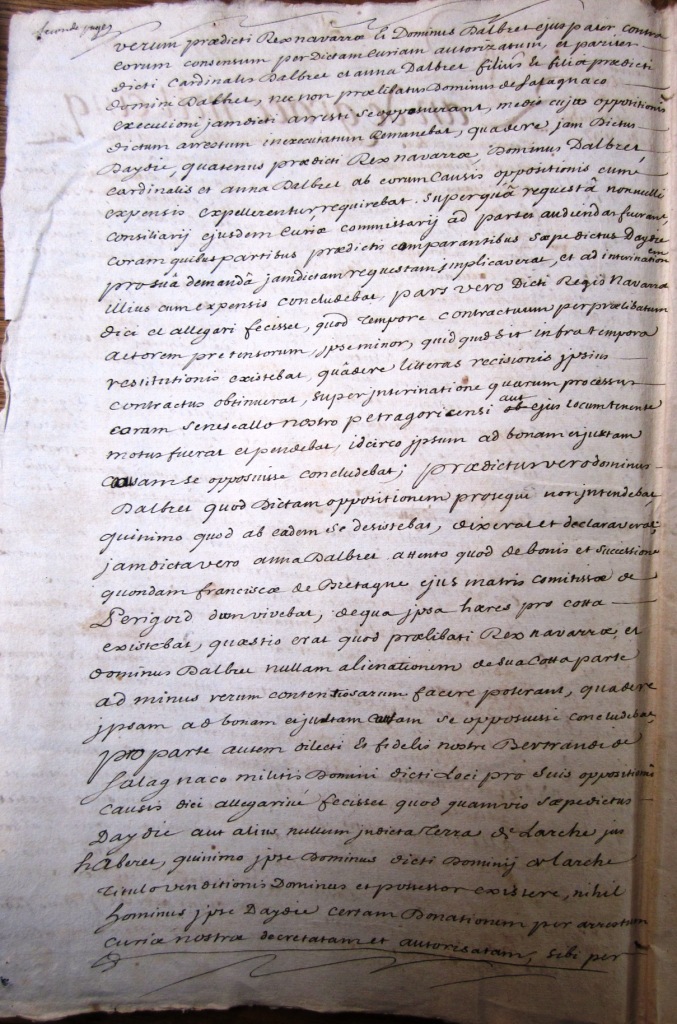 seconde page
verum prædicti Rex navarræ et Dominus Dalbret ejus pater, contra
eorum consensum per Dictam Curiam autorizatum, et pariter
dicti Cardinalis Dalbret et anna Dalbret filius et filia prædicti
Domini Dalbret, nec non prælibatus Dominus de Salagnaco
executioni jam dicti arresti se opposuerant, medio cujus oppositionis
dictum arrestum inexecutum Remanebat, quadere, jam Dictus
Daydie, quatenus prædicti Rex navarræ, Dominus Dalbret,
cardinalis et anna Dalbret ab eorum Causis oppositionis cum
expensis expellerentur, requirebat. Super quâ requestâ nonnulli
consiliarij ejusdem Curiæ commissarij ad partes audiendas fuerant
coram quibus partibus prædictis comparantibus Sæpe dictus Daydie
pro suâ demandâ jamdictam requestam implicaverat, et ad interinationem
illius cum expensis concludebat, pars vero Dicti Regis Navarræ
dici et allegari fecisset, quod tempore contractuum per prælibatum
actorem pretensorum, ipse minor, quidquid sit infra tempora
restitutionis existebat, quâdere litteras recisionis jpsius
contractus obtinuerat, super jnterinatione quarum processus
coram Senescallo nostro petragoricensi aut ejus locumtenente
motus fuerat et pendebat, idcirco jpsum ad bonam et justam
causam se opposuisse concludebat; prædictus vero dominus
Dalbret quod Dictam oppositionem prosequi non jntendebat,
quinimo quod ab eadem se desistebat, dixerat et declaraverat;
jamdicta vero anna Dalbret attento quod de bonis et successione
quondam franciscæ de Bretagne ejus matris comitissæ de
Perigord dum vivebat, de qua jpsa hæres pro cotta
existebat, quæstio erat quod prælibati Rex navarræ, et
dominus Dalbret nullam alienationem de sua Cotta parte
ad minus rerum contentiosarum facere poterant, quadere
jpsam ad bonam et justam causam se opposuisse concludebat,
pro parte autem dilecti et fidelis nostri Bertrandi de
Salagnaco militis Domini dicti Loci pro suis oppositionis
causis dici allegarive fecisset quod quamvis sæpedictus
Daydie aut alius, nullum jn dicta Terra de Larche jus
haberet, quinimo jpse Dominus dicti Dominij de larche
Titulo venditionis Dominus et possessor existere, nihil
hominus jpse Daydie certam Donationem per arrestum
curiæ nostræ decretatam et autorisatam, sibi per